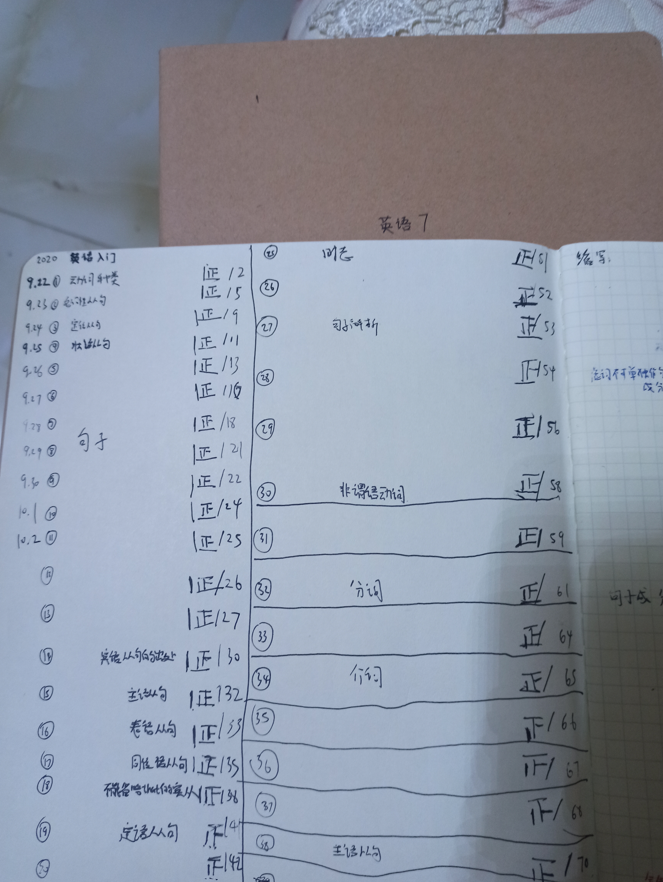 英语 7
2020 英语入门
9.22 ① 动词种类 正/2
9.23 ② 名词性从句 正/5
9.24 ③ 定语从句 正/9
9.25 ④ 状语从句 正/11
9.26 ⑤ 正/13
9.27 ⑥ 正/16
9.28 ⑦ 正/18
句子
9.29 ⑧ 正/21
9.30 ⑨ 正/22
10.1 ⑩ 正/24
10.2 ⑪ 正/25
正/26
⑬ 正/27
⑭ 正/30
⑮ 主语从句 正/32
⑯ 表语从句 正/33
⑰ 同位语从句 正/35
⑱ 正/38
⑲ 定语从句 正/4
正/42
㉕ 时态 正/51
㉖ 正/52
㉗ 句子评析 正/53
㉘ 正/54
㉙ 正/56
㉚ 非谓语动词 正/58
㉛ 正/59
㉜ 分词 正/61
㉝ 正/64
㉞ 介词 正/65
㉟ 正/66
㊱ 正/67
㊲ 正/68
主语从句 正/70
缩写:
句子成